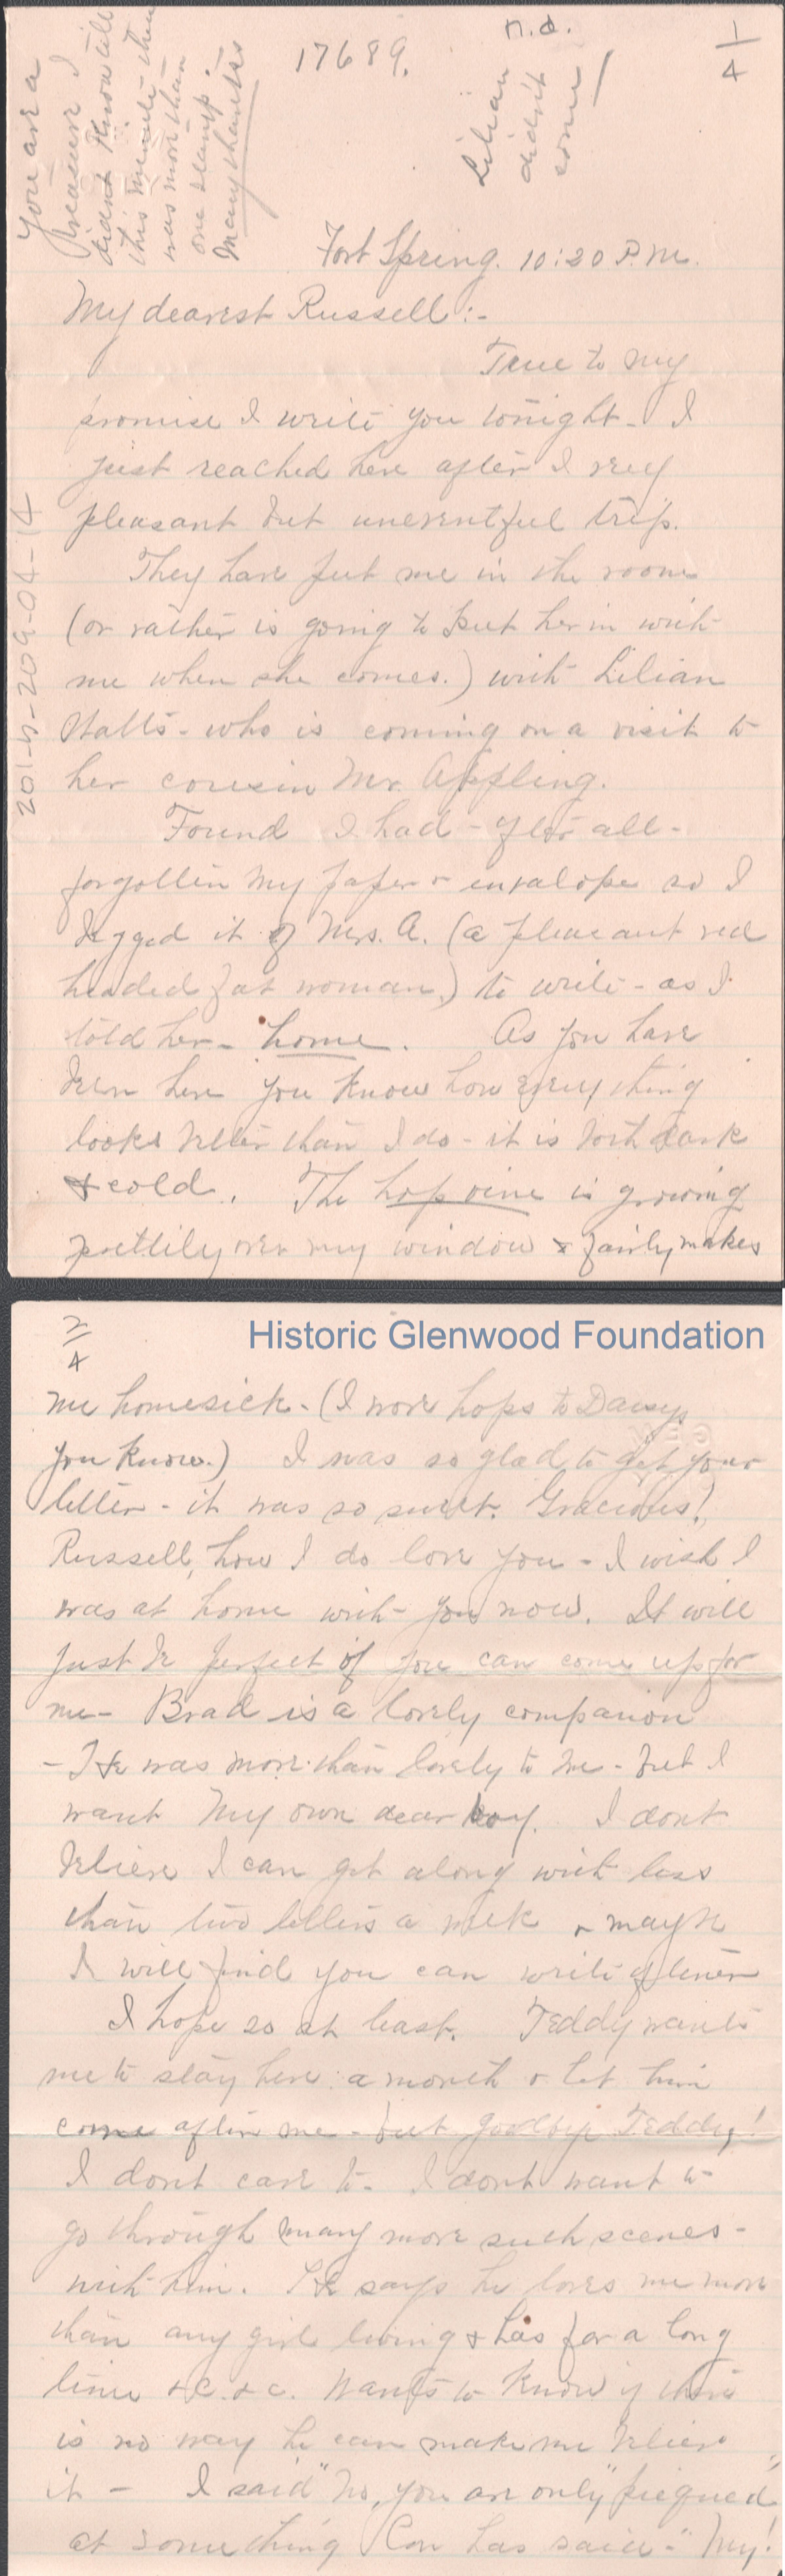 You are a
treasure I
didnt know till
this minute there
was more than
one stamp.
Many thanks
17689.
n.d.
Lilian
didn't
come!
1/4
201-5-209-04-14
Fort Spring. 10:20 P.M.
My dearest Russell:-
True to my
promise I write you tonight- I
just reached here after I very
pleasant but uneventful trip.
They have put me in the room
(or rather is going to put her in with
me when she comes.) with Lilian
Watts- who is coming on a visit to
her cousin Mr. Appling.
Found I had - after all-
forgotten my paper & envalope so I
begged it of Mrs. A. (a pleasant red
headed fat woman,) to write - as I
told her- home. As you have
been here you know how everything
looks better than I do - it is both dark
& cold. The hop vine is growing
prettily over my window & fairly makes
2/4
Historic Glenwood Foundation
me homesick- (I wore hops to Daisys
you know.) I was so glad to get your
letter - it was so sweet. Gracious!
Russell, how I do love you - I wish I
was at home with you now. It will
just be perfect if you can come up for
me- Brad is a lovely companion
- He was more than lovely to me - but I
want my own dear boy. I dont
believe I can get along with less
than two letters a week & maybe
I will find you can write oftener
I hope so at least. Teddy wants
me to stay here a month & let him
come after me - but goodbye Teddy!
I dont care to- I dont want to
go through many more such scenes-
with him. He says he loves me more
than any girl living & has for a long
time &c. &c. Wants to know if there
is no way he can make me believe
it - I said "No, you are only "piqued"
at something Con has said-" My!